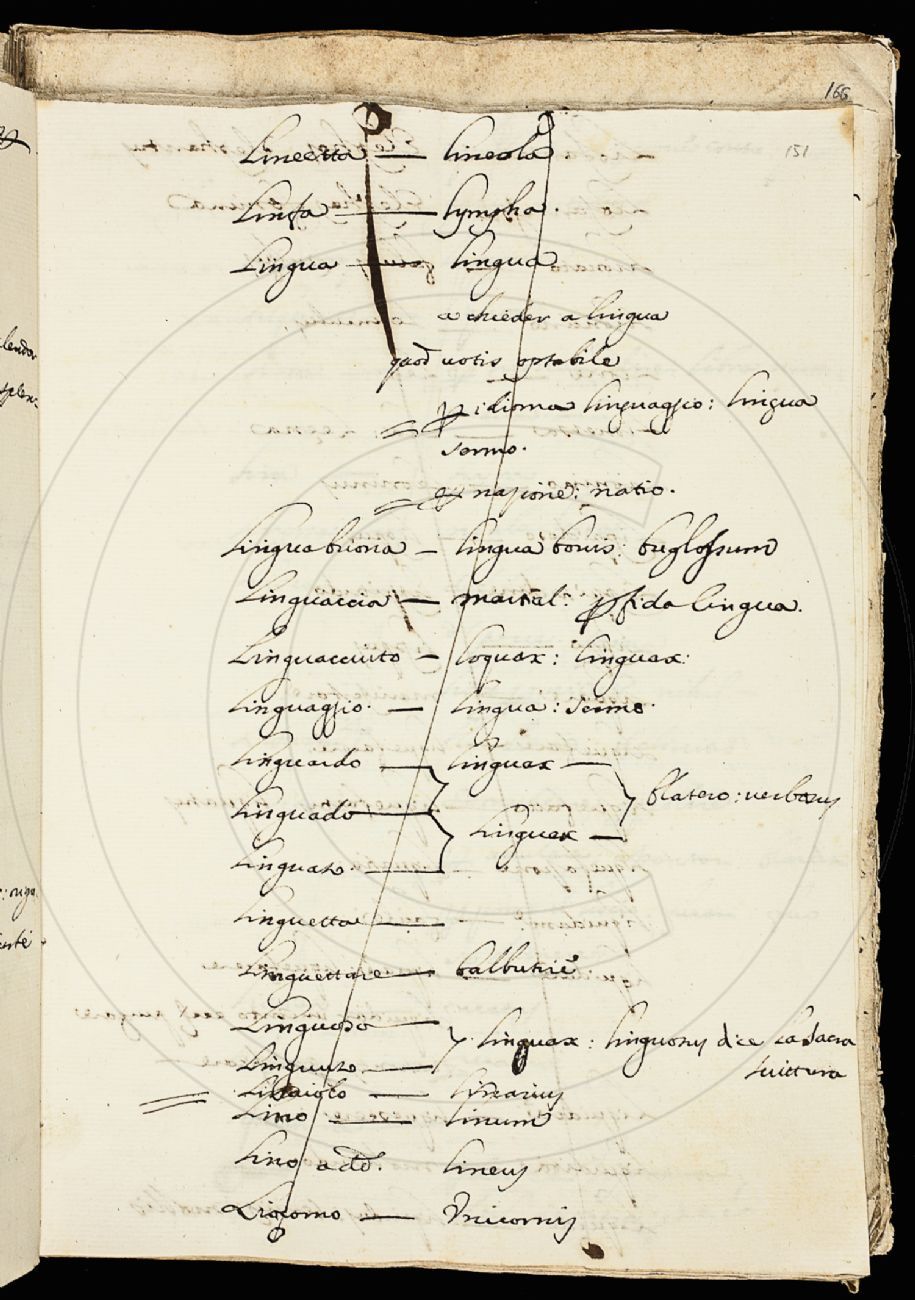 166
151
Lineetta — lineola
Linfa — lympha.
Lingua — lingua
a chieder a lingua
quod votis optabile
= p idioma linguaggio: lingua
sermo.
= nazione: natio.
Lingua buona — lingua bovis: buglossum
Linguaccia — martial: pfida lingua.
Linguacciuto — loquax: linguax:
linguaggio. — lingua: sermo.
linguardo — linguax —
blatero: verbosus
linguado —
linguax —
linguato —
linguetta —
Linguettare — balbutire
Linguoso —
linguax: linguosus dice la sacra
scrittura
Linguuto —
= Linaiolo — linarius
Lino — linum
Lino add. lineus
Liocorno — Unicornis
lendor
splen-